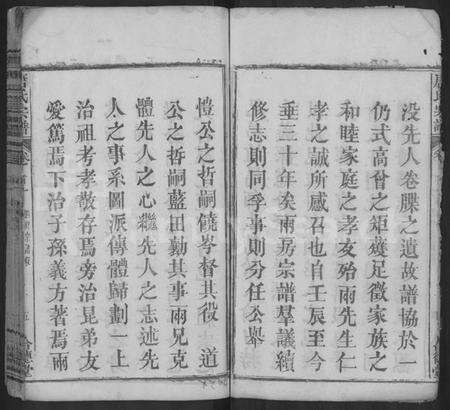 没先人卷牒之遺故譜協於一
仍式高曾之矩矱足徵家族之
和睦家庭之孝友殆雨先生仁
孝之誠所感召也自壬辰至今
垂三十年矣兩房宗譜羣議續
修志則同季事則分任公舉
愷公之哲嗣饒岑督其役 道
公之哲嗣藍田勷其事兩兄克
體先人之心繼先人之志述先
人之事系圖派傳體歸劃一上
治祖考孝敬存焉旁治昆弟友
愛篤焉下治子孫義方著焉兩
氏宗譜
卷首